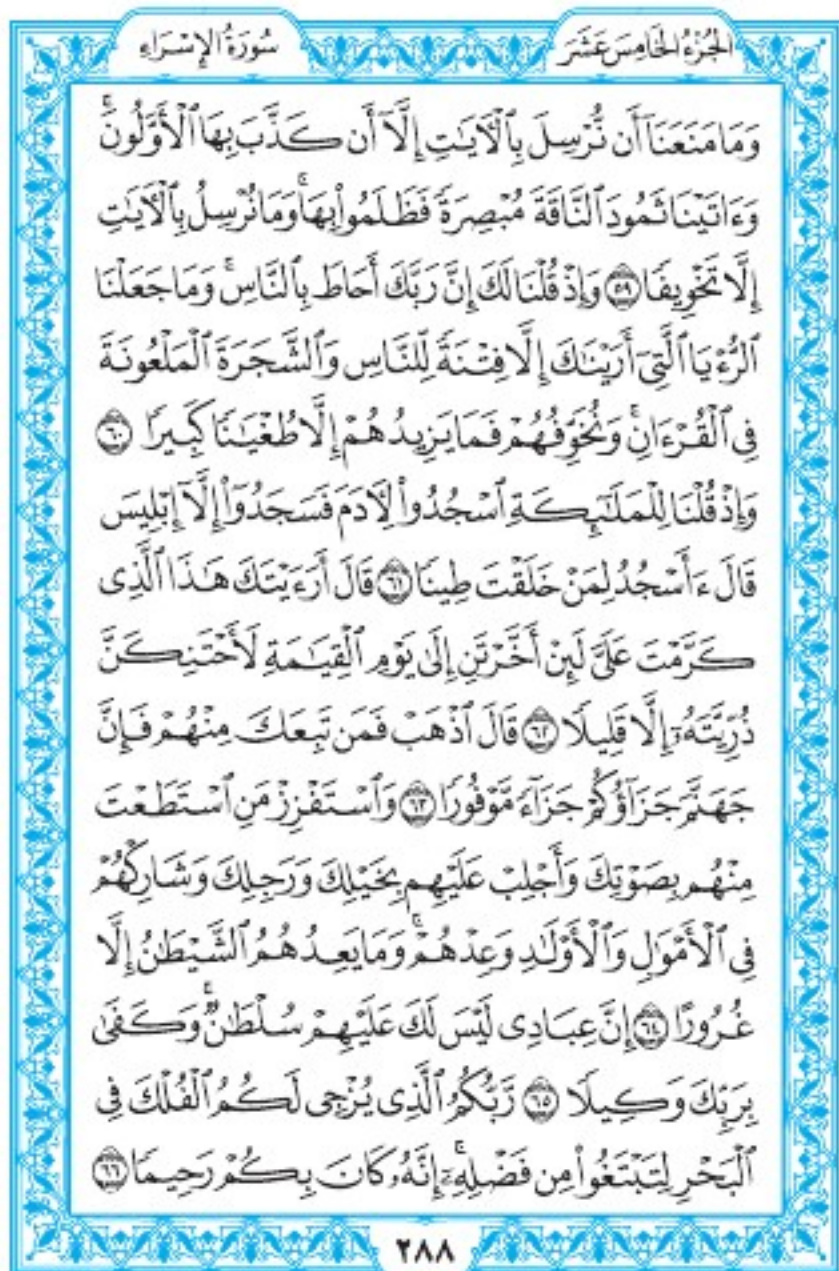 الجُزْءُ الخَامِسَ عَشَرَ
سُورَةُ الإِسْرَاءِ
وَمَا مَنَعَنَآ أَن نُّرْسِلَ بِٱلْأٓيَٰتِ إِلَّآ أَن كَذَّبَ بِهَا ٱلْأَوَّلُونَۚ
وَءَاتَيْنَا ثَمُودَ ٱلنَّاقَةَ مُبْصِرَةً فَظَلَمُوا۟ بِهَاۚ وَمَا نُرْسِلُ بِٱلْأٓيَٰتِ
إِلَّا تَخْوِيفًا ۝٥٩ وَإِذْ قُلْنَا لَكَ إِنَّ رَبَّكَ أَحَاطَ بِٱلنَّاسِۚ وَمَا جَعَلْنَا
ٱلرُّءْيَا ٱلَّتِىٓ أَرَيْنَٰكَ إِلَّا فِتْنَةً لِّلنَّاسِ وَٱلشَّجَرَةَ ٱلْمَلْعُونَةَ
فِى ٱلْقُرْءَانِۚ وَنُخَوِّفُهُمْ فَمَا يَزِيدُهُمْ إِلَّا طُغْيَٰنًا كَبِيرًا ۝٦٠
وَإِذْ قُلْنَا لِلْمَلَٰٓئِكَةِ ٱسْجُدُوا۟ لِأٓدَمَ فَسَجَدُوٓا۟ إِلَّآ إِبْلِيسَ
قَالَ ءَأَسْجُدُ لِمَنْ خَلَقْتَ طِينًا ۝٦١ قَالَ أَرَءَيْتَكَ هَٰذَا ٱلَّذِى
كَرَّمْتَ عَلَىَّ لَئِنْ أَخَّرْتَنِ إِلَىٰ يَوْمِ ٱلْقِيَٰمَةِ لَأَحْتَنِكَنَّ
ذُرِّيَّتَهُۥٓ إِلَّا قَلِيلًا ۝٦٢ قَالَ ٱذْهَبْ فَمَن تَبِعَكَ مِنْهُمْ فَإِنَّ
جَهَنَّمَ جَزَآؤُكُمْ جَزَآءً مَّوْفُورًا ۝٦٣ وَٱسْتَفْزِزْ مَنِ ٱسْتَطَعْتَ
مِنْهُم بِصَوْتِكَ وَأَجْلِبْ عَلَيْهِم بِخَيْلِكَ وَرَجِلِكَ وَشَارِكْهُمْ
فِى ٱلْأَمْوَٰلِ وَٱلْأَوْلَٰدِ وَعِدْهُمْۚ وَمَا يَعِدُهُمُ ٱلشَّيْطَٰنُ إِلَّا
غُرُورًا ۝٦٤ إِنَّ عِبَادِى لَيْسَ لَكَ عَلَيْهِمْ سُلْطَٰنٌۚ وَكَفَىٰ
بِرَبِّكَ وَكِيلًا ۝٦٥ رَّبُّكُمُ ٱلَّذِى يُزْجِى لَكُمُ ٱلْفُلْكَ فِى
ٱلْبَحْرِ لِتَبْتَغُوا۟ مِن فَضْلِهِۦٓۚ إِنَّهُۥ كَانَ بِكُمْ رَحِيمًا ۝٦٦
٢٨٨